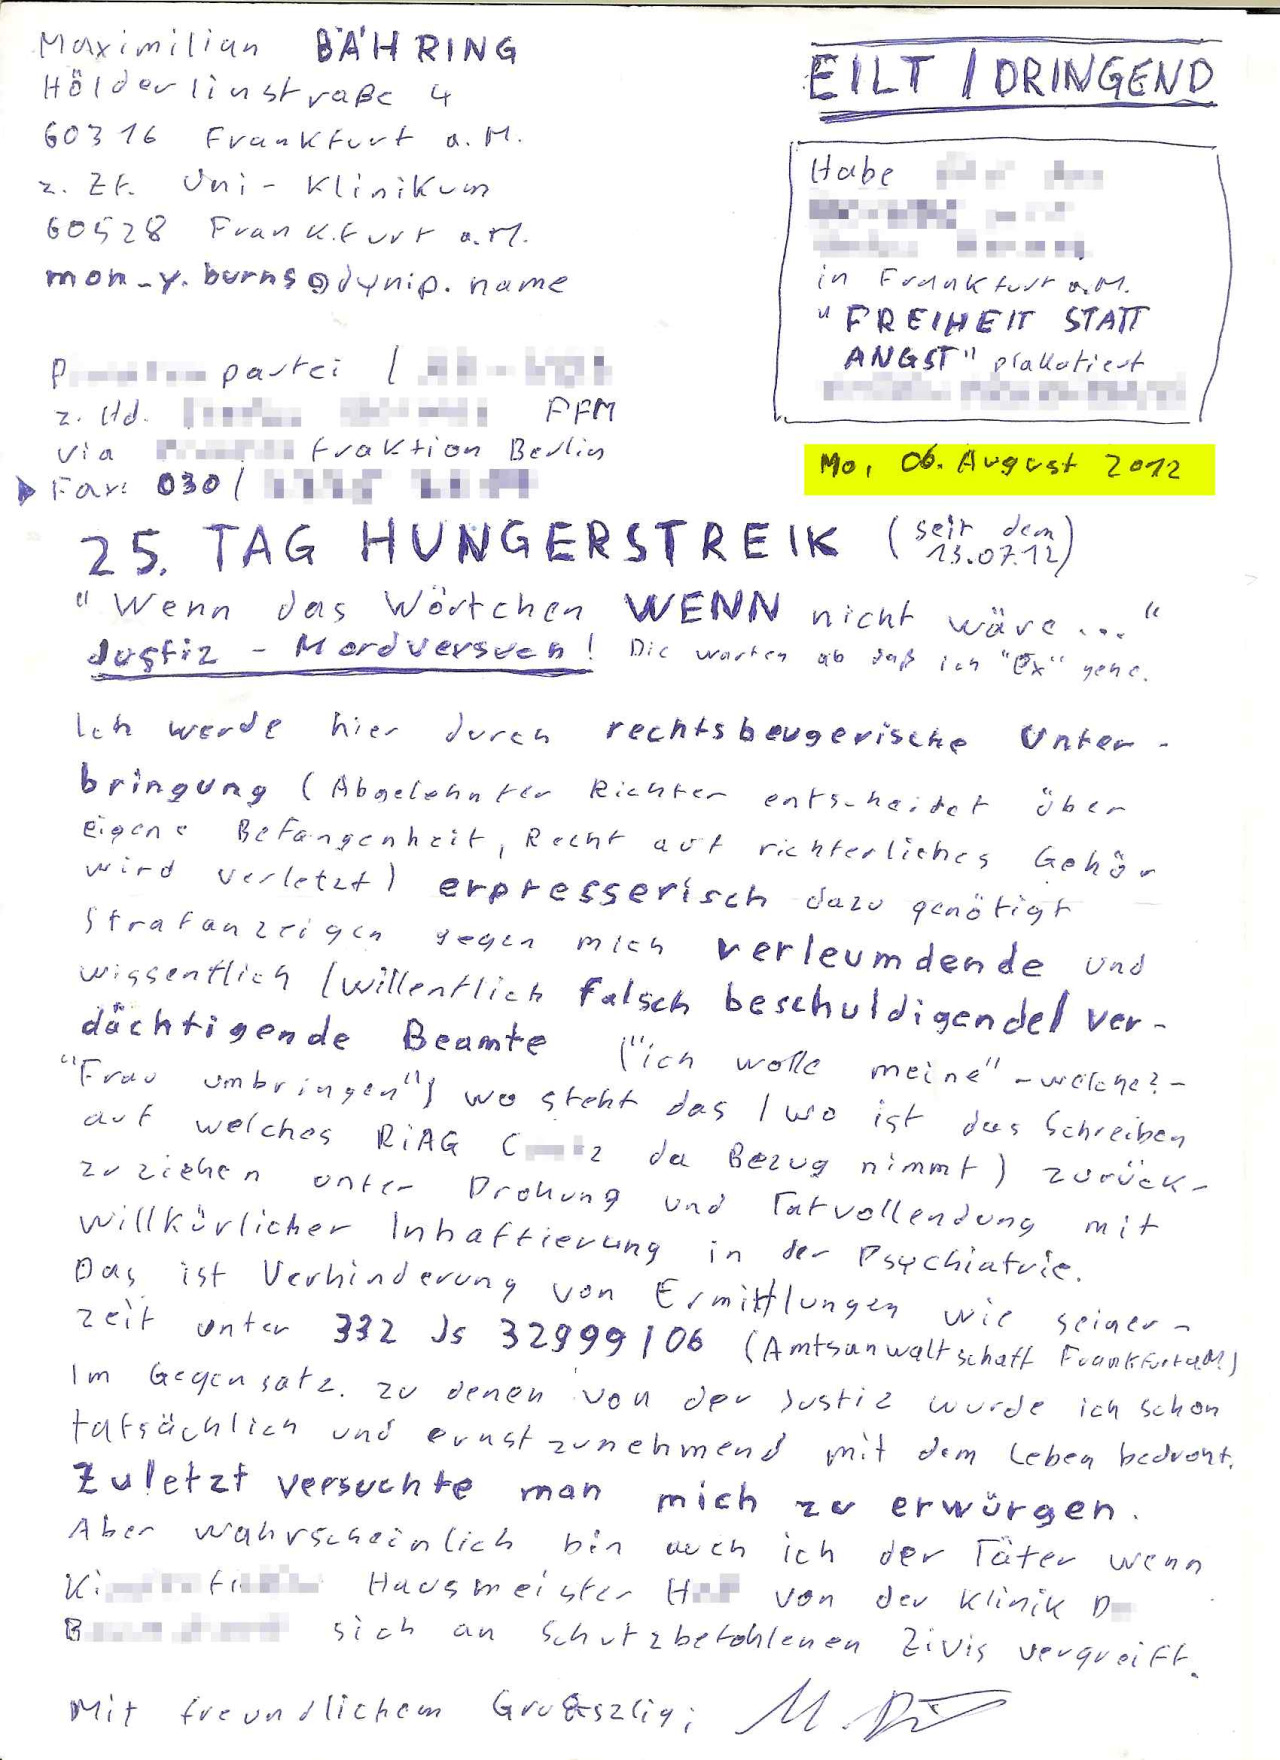 Maximilian BÄHRING
Hölderlinstraße 4
60316 Frankfurt a.M.
z. Zt. Uni-Klinikum
60528 Frankfurt a.M.
mon_y.burns@dynip.name
EILT / DRINGEND
Habe
in Frankfurt a.M.
"FREIHEIT STATT
ANGST" plakatiert
P partei /
z. Hd. FFM
via Fraktion Berlin
Fax: 030 /
Mo, 06. August 2012
25. TAG HUNGERSTREIK (seit dem
13.07.12)
"Wenn das Wörtchen WENN nicht wäre..."
Justiz-Mordversuch! Die warten ab daß ich "Ex" gehe.
Ich werde hier durch rechtsbeugerische Unter-
bringung (Abgelehnter Richter entscheidet über
eigene Befangenheit, Recht auf richterliches Gehör
wird verletzt) erpresserisch dazu genötigt
Strafanzeigen gegen mich verleumdende und
wissentlich/willentlich falsch beschuldigende/ver-
dächtigende Beamte ("ich wolle meine" -welche?-
"Frau umbringen"} wo steht das / wo ist das Schreiben
auf welches RiAG C z da Bezug nimmt) zurück-
zuziehen unter Drohung und Tatvollendung mit
willkürlicher Inhaftierung in der Psychiatrie.
Das ist Verhinderung von Ermittlungen wie seiner-
zeit unter 332 Js 32999/06 (Amtsanwaltschaft Frankfurt a.M.)
Im Gegensatz. zu denen von der Justiz wurde ich schon
tatsächlich und ernstzunehmend mit dem Leben bedroht.
Zuletzt versuchte man mich zu erwürgen.
Aber wahrscheinlich bin auch ich der Täter wenn
Ki Hausmeister H von der Klinik D
B sich an Schutzbefohlenen Zivis vergreift.
Mit freundlichem